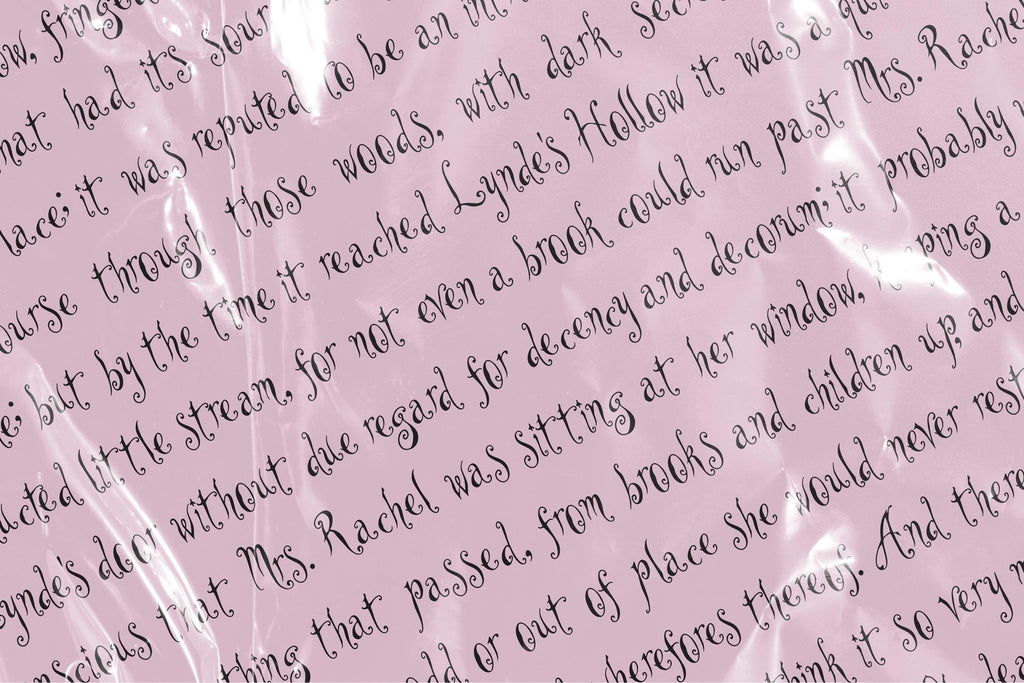 ow, fringed
hat had its sour
lace; it was reputed to be an in
ourse through those woods, with dark secre
e; but by the time it reached Lynde's Hollow it was a qui
ucted little stream, for not even a brook could run past Mrs. Rachel
ynde's door without due regard for decency and decorum; it probably
nscious that Mrs. Rachel was sitting at her window, k eping a
thing that passed, from brooks and children up, and
odd or out of place she would never rest
herefores thereof. And there
think it so very
dea